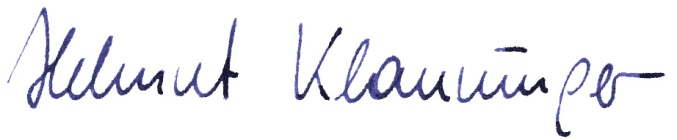 Helmut Klauninger